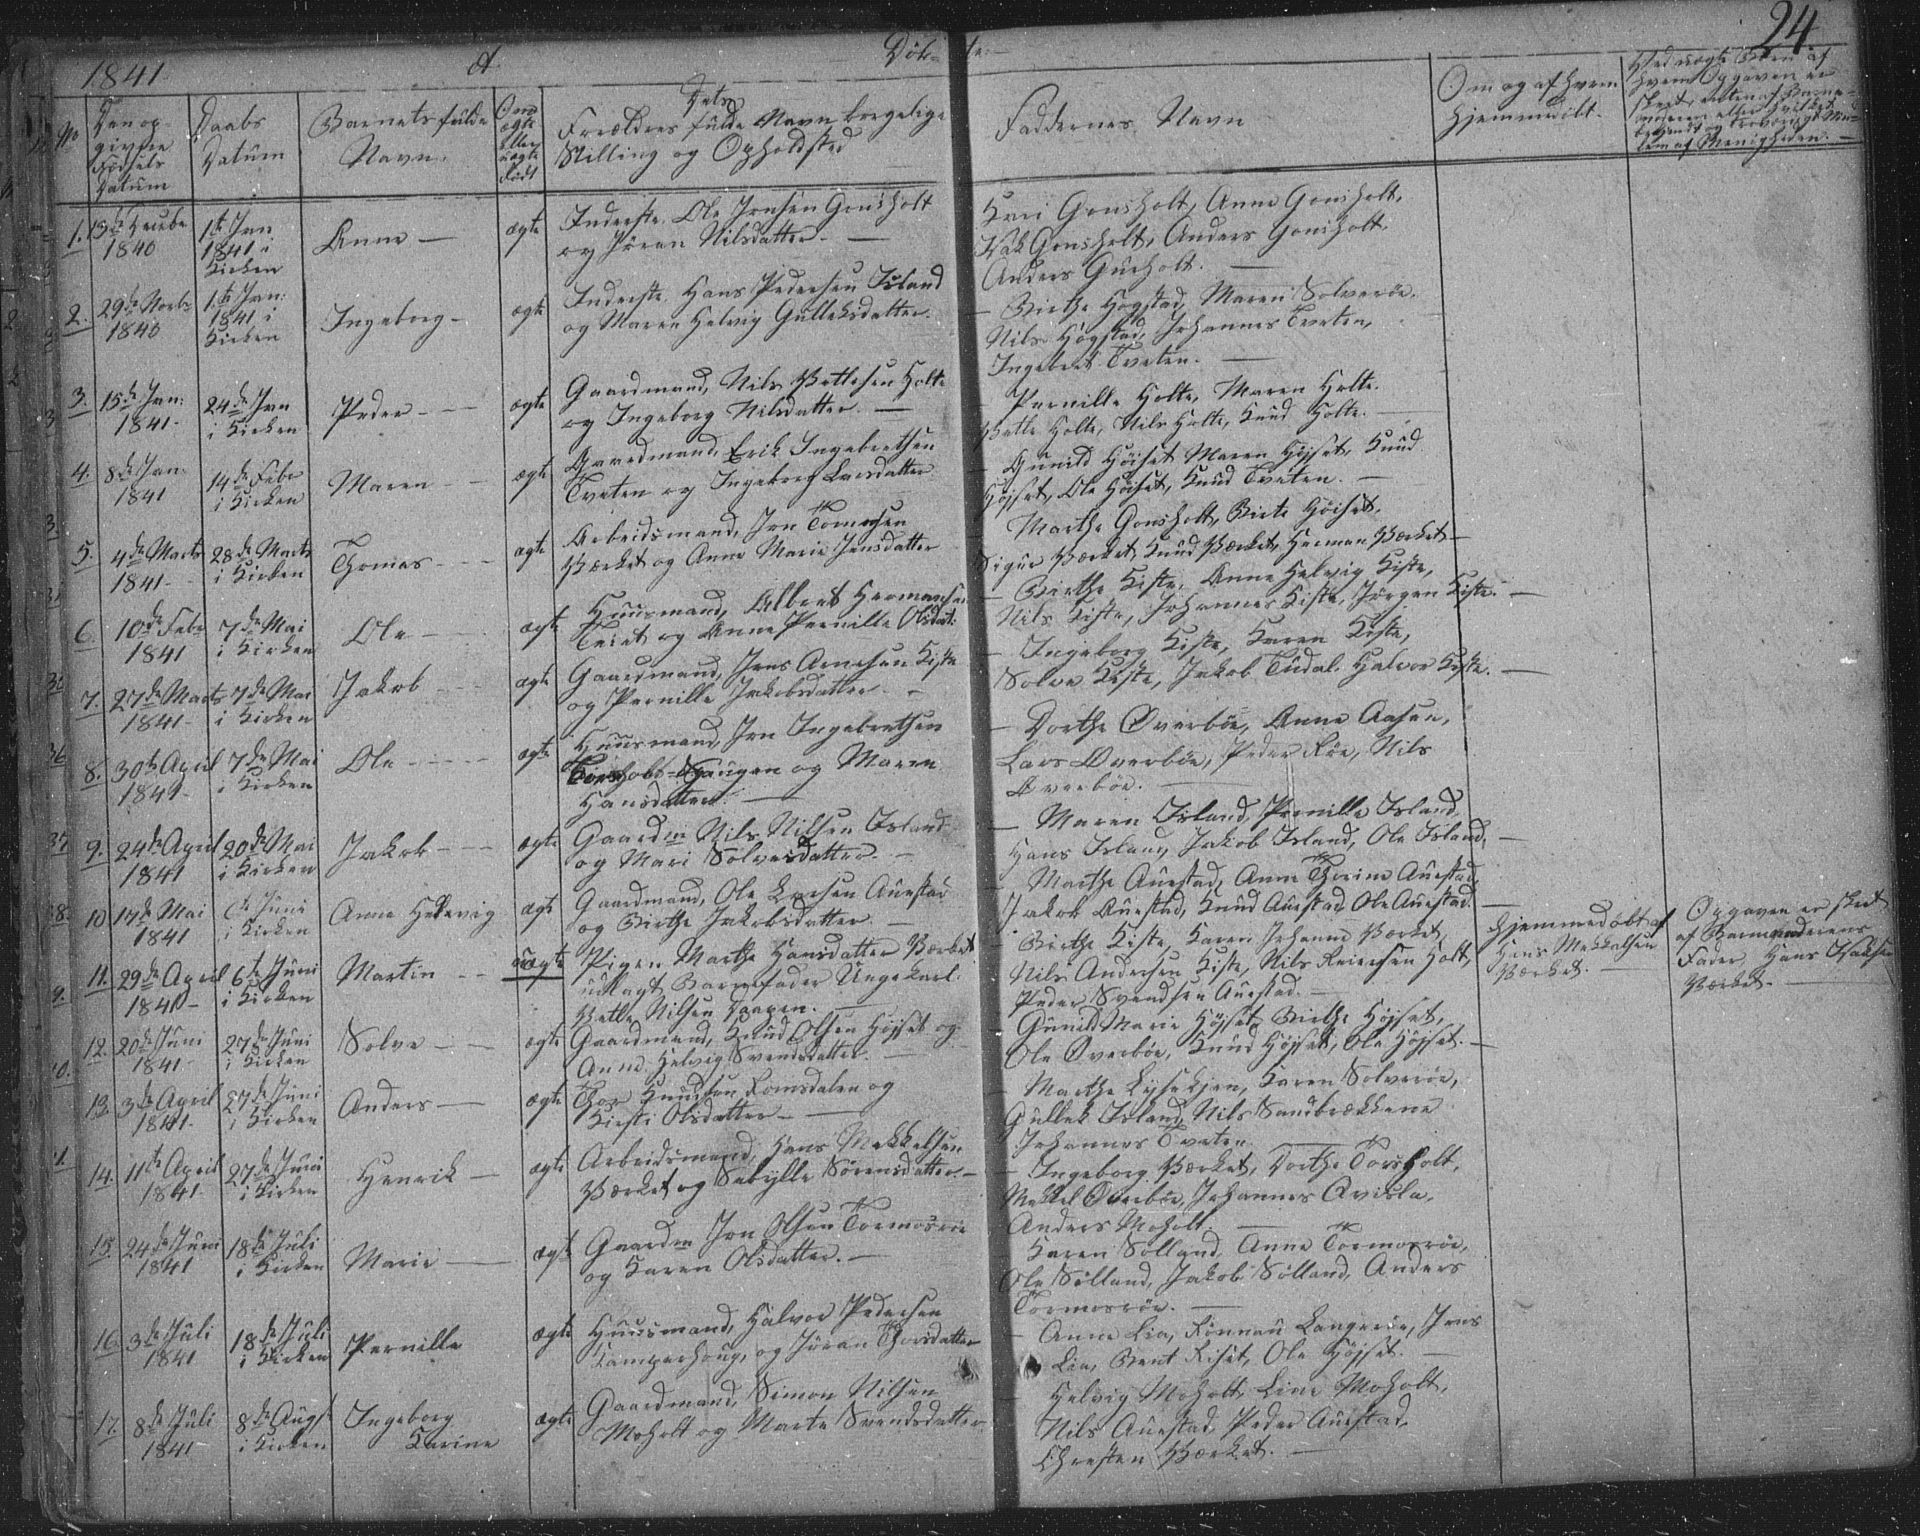 1841
Døb-
te.-
24.
No
Den op-
givne
Fødsels
Datum
Daabs
Datum
Barnets fulde
Navn.
Om
ægte
eller
uægte
født
Dets
Forældres fulde Navn borgelige
Stilling og Opholdsted
Faddernes Navn
Om og af hvem
hjemmedøbt.
1.
1840
1te Jan
1841 i
Kirken
Anne —
ægte
Inderste. Ole Jensen Gonsholt
og Jöran Nilsdatter. —
Kari Gonsholt, Anne Gonsholt,
Isak Gonsholt, Anders Gonsholt.
Anders Gusholt. —
2.
29de Novbr
1840
1te Jan:
1841 i
Kirken
Ingeborg —
ægte
Inderste. Hans Pedersen Island
og Maren Helvig Gulleksdatter.
— Birthe Högstad, Maren Solveröe.
Nils Högstad, Johannes Tveten,
Ingebret Tveten. —
3.
15de Jan:
1841-
24de Jan
i Kirken
Peder —
ægte
Gaardmand, Nils Vettesen Holte
og Ingeborg Nilsdatter. —
Pernille Holte, Maren Holte.
Vetle Holte, Nils Holte, Knud Holte. —
4.
8de Jan:
1841
14de Febr
i Kirken
Maren —
ægte
Gaardmand, Erik Ingebrethsen
Tveten og Ingeborg Larsdatter
— Gunild Höiset, Maren Höjset, Knud
Höjset, Ole Höiset, Knud Tveten. —
5.
4de Marts
1841.
28de Marts
i Kirken
Thomas —
ægte
Arbeidsmand, Jon Tomesen
Værket og Anne Marie Jensdatter
Marthe Gonsholt, Birte Höiset,
Sigur Værket, Knud Værket, Herman Værket —
6.
10de Febr
1841
7de Mai
i Kirken
Ole —
ægte
Huusmand, Albret Hermansen
og Anne Pernille Olsdat:
— Birthe Kiste, Anne Helvig Kiste,
Nils Kiste, Johannes Kiste, Jörgen Kiste. —
7.
27de Marts
1841-
7de Mai
i Kirken
Jakob —
ægte
Gaardmand, Jens Arnesen Kiste
og Pernille Jakobsdatter. —
— Ingeborg Kiste, Karen Kiste,
Solve Kiste, Jakob Tudal. Halvor Kiste. —
8.
30te April
1841-
7de Mai
i Kirken
Ole —
ægte
Huusmand, Jon Ingebrethsen
og Maren
Hansdatter. —
— Dorthe Överböe, Anne Aasen,
Lars Överböe, Peder Röe, Nils
Överböe. —
9.
24de April
1841
20de Mai
i Kirken
Jakob —
ægte
Gaardm Nils Nilsen Island
og Mari Solvesdatter. —
— Maren Island, Pernille Island,
Hans Island, Jakob Island, Ole Island, —
10
17de Mai
1841
6te Juni
i Kirken
Anne Helevig
ægte
Gaardmand, Ole Larsen Auestad
og Birthe Jakobsdatter —
— Marthe Auestad, Anne Thorine Auestad,
Jakob Auestad, Knud Auestad, Ole Auestad. —
11.
29de April
1841-
6te Juni
i Kirken
Martin —
uægte
Pigen Marthe Hansdatter Værket
udlagt Barnefader Ungekarl.
Vetle Nilsen —
— Birthe Kiste, Karen Johanne Værket,
Nils Andersen Kiste, Nils Reiersen Holt,
Peder Svendsen Auestad. —
Hjemmedöbt af
Hans Mekkelsen
Værket. —
Opgaven er skeet
af Barnemoderens
Fader, Hans Isaksen
Værket. —
12.
20de Juni
1841-
27de Juni
i Kirken
Solve —
ægte
Gaardmand, Knud Olsen Höjset og
Anne Helvig Svendsdatter. —
Gunild Marie Höjset, Birthe Höjset,
Ole Överböe, Knud Höjset, Ole Höjset. —
13.
3de April
1841-
27de Juni
i Kirken
Anders —
ægte
Thor Knudsen Romsdalen og
Kirsti Olsdatter —
— Marthe Lysekjen, Karen Solveröe,
Gullek Island, Nils Sandbrækkene
Johannes Tveten. —
14.
11te April
1841-
27de Juni
i Kirken
Henrik —
ægte
Arbeidsmand, Hans Mekkelsen
Værket og Sabylle Sörensdatter —
— Ingeborg Værket, Dorthe Torsholt,
Mekkel Överböe, Johannes Avikla,
Anders Moholt. —
15.
24de Juni
1841
18de Juli
i Kirken
Marie —
ægte
Gaardm Jon Olsen Tormosröe
og Karen Olsdatter. —
Karen Sölland, Anne Tormosröe,
Ole Sölland, Jakob Sölland, Anders
Tormosröe. —
16.
3de Juli
1841
18de Juli
i Kirken
Pernille
ægte
Huusmand, Halvor Pedersen
Kamperhoug, og Jöran Thorsdatter
— Anne Lia, Rönnau Langeröe, Jens
Lia, Bent Riset, Ole Höjset. —
17.
8de Juli
1841
8de Augst
i Kirken
Ingeborg
Karine
ægte
Gaardmand, Simon Nilsen
Moholt og Marte Svendsdatter
Helvig Moholt, Line Moholt,
Nils Auestad, Peder Auestad,
Christen Værket. —